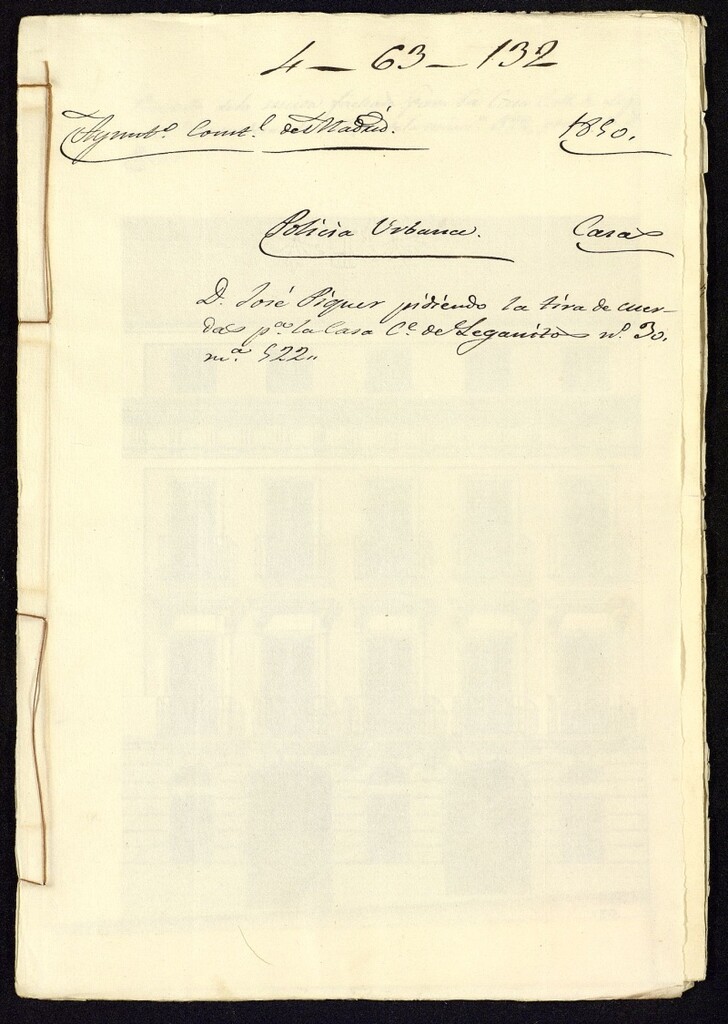 4-63-132
Ayunto. Const.l de Madrid. 1850.
Policia Urbana. Casas
D. José Piquer pidiendo la tira de cuer-
das pa. la Casa C.e de Leganitos nº. 30.
mª. 522.